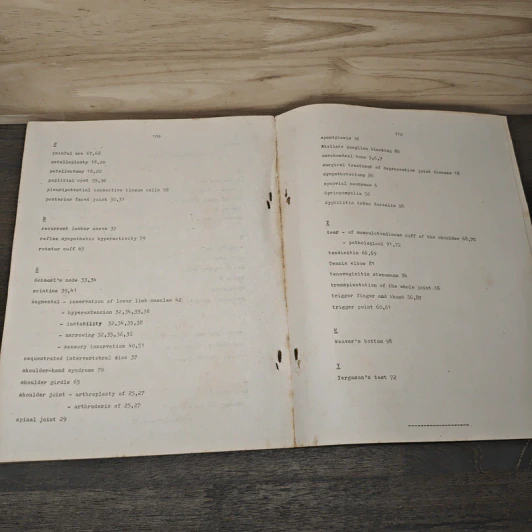 P
painful arc 67,68
patelloplasty 18,20
patellectomy 18,20
popliteal cyst
pluripotential connective tissue cells
posterior facet joint 30,31
R
recurrent locker nerve 32
reflex sympathetic hyperactivity
rotator cuff 65
S
Schmorl's node 33,34
sciatica 39,41
segmental - innervation of lower limb muscles 42
- hyperextension 32,34,35,38
- instability 32,34,35,38
- narrowing 32,35,36,38
- sensory innervation 40,51
sequestrated intervertebral disc 37
shoulder-hand syndrome 79
shoulder girdle 65
shoulder joint - arthroplasty of 25,27
- arthrodesis of 25,27
spinal joint 29
spondylosis
Stellate ganglion blocking
subchondral bone
surgical treatment of degenerative joint disease
sympathectomy
synovial membrane
syringomyelia
syphilitic tabes dorsalis
T
tear - of musculotendinous cuff of the shoulder 68,70
- pathological 71,72
tendinitis 68,69
Tennis elbow 81
Tenovaginitis stenosans
transplantation of the whole joint
trigger finger and thumb
trigger point 60,61
W
Weaver's bottom 98
Y
Yergason's test 72